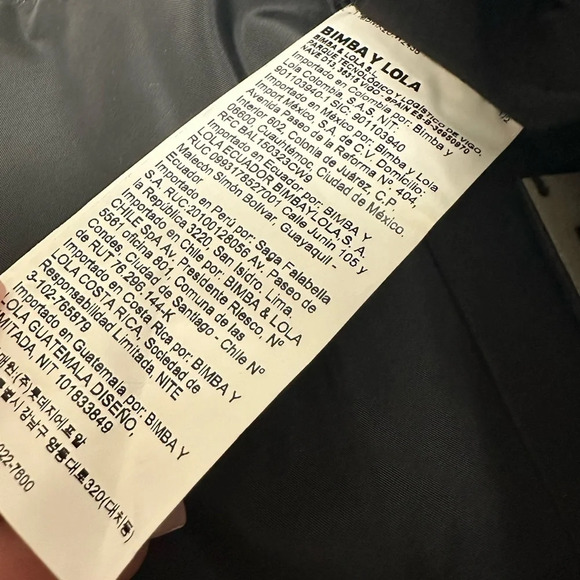 BIMBA Y LOLA
BIMBA & LOLA S.L.
PARQUE TECNOLÓGICO Y LOGÍSTICO DE VIGO,
NAVE D13, 36315 VIGO. SPAIN ES B-36950970
Importado en Colombia por: Bimba y
Lola Colombia, S.A.S. NIT:
901103940-1 SIC: 901103940
Import México, S.A. de C.V. Domicilio:
Avenida Paseo de la Reforma Nº 404,
Interior 802, Colonia de Juárez, C.P.
06600 Cuauhtémoc, Ciudad de México.
RFC BAL150323CW9
Importado en Ecuador por: BIMBA Y
LOLA ECUADOR BIMBAYLOLA S. A.
RUC 0993178527001 Calle Junín 105 y
Malecón Simón Bolívar. Guayaquil -
Ecuador
Importado en Perú por: Saga Falabella
S.A. RUC:20100128056 Av. Paseo de
la República 3220 San Isidro, Lima.
Importado en Chile por: BIMBA & LOLA
CHILE SpA Av. Presidente Riesco, Nº
5561 oficina 801 Comuna de las
Condes, Ciudad de Santiago - Chile Nº
de RUT 76.296.144-K
Importado en Costa Rica por: BIMBA Y
LOLA COSTA RICA, Sociedad de
Responsabilidad Limitada, NITE
3-102-765879
Importado en Guatemala por: BIMBA Y
LOLA GUATEMALA DISEÑO,
LIMITADA, NIT 101833849
(주)롯데지에프알
강남구 영동대로320(대치동)
022-7600